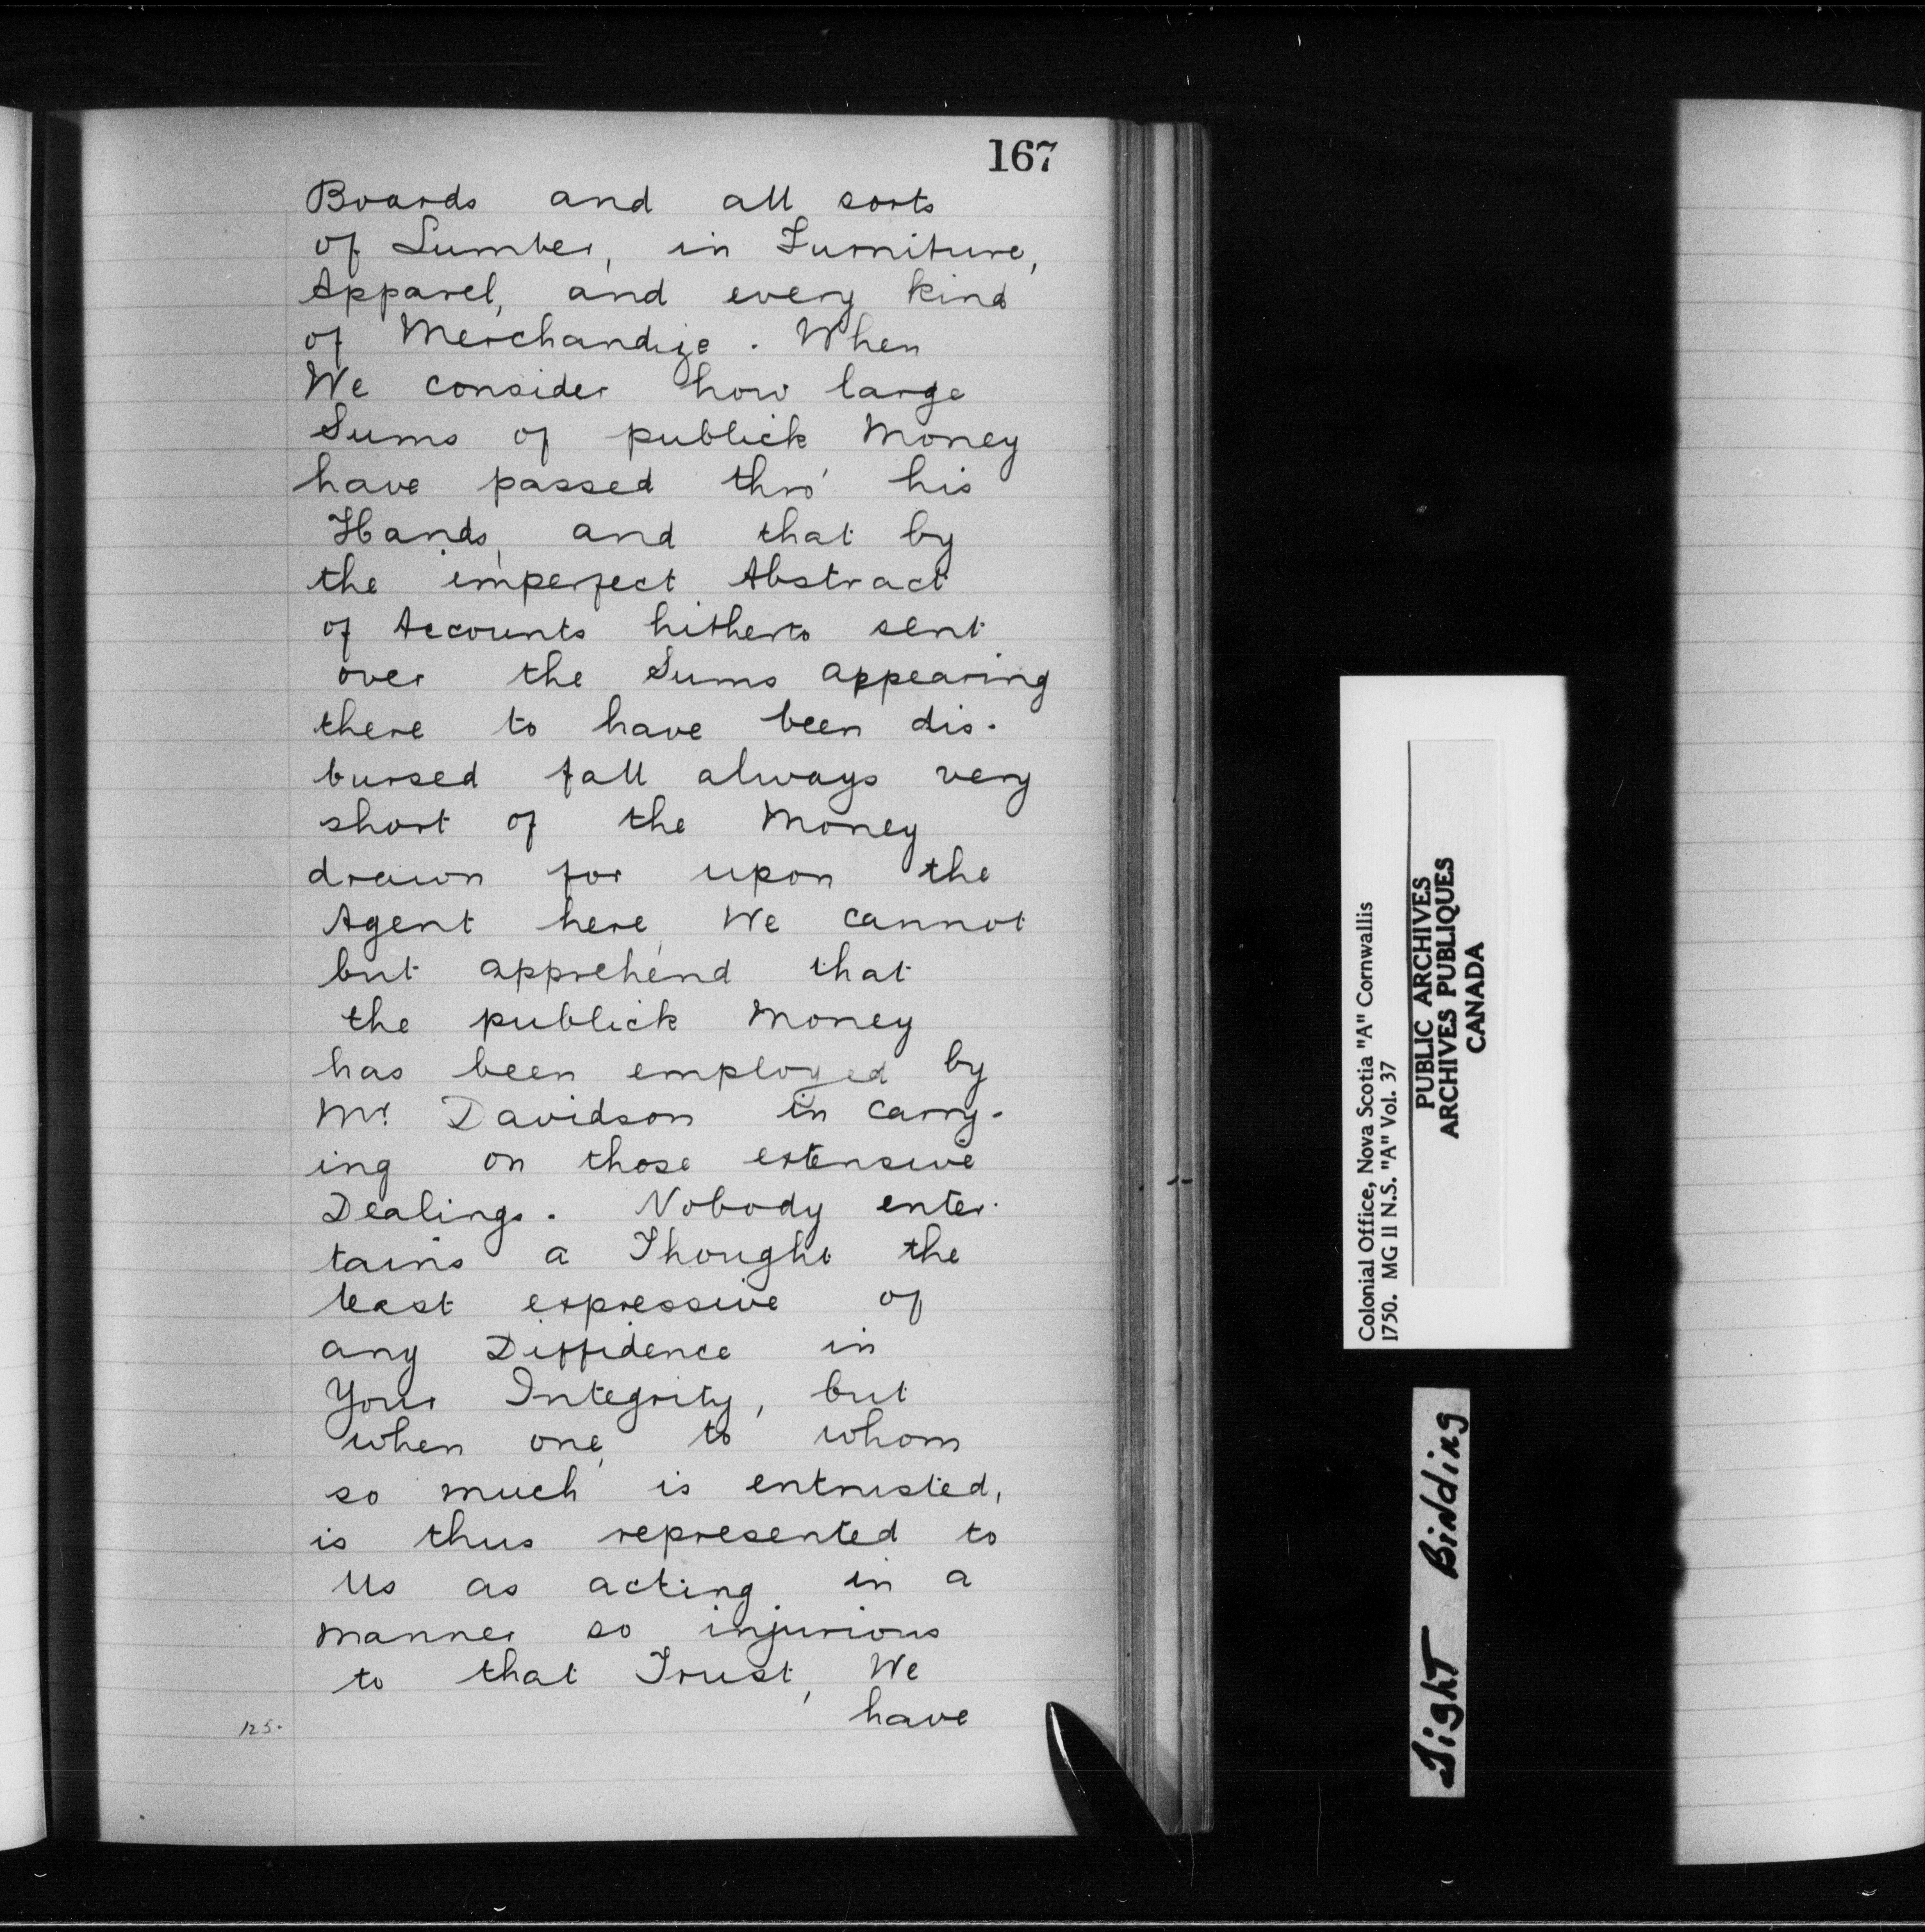 167
Boards and all sorts
of Lumber, in Furniture,
Apparel, and every kind
of Merchandize. When
We consider how large
Sums of publick Money
have passed thro' his
Hands, and that by
the imperfect Abstract
of Accounts hitherto sent
over the Sums appearing
there to have been dis-
bursed fall always very
short of the Money
drawn for upon the
Agent here, We cannot
but apprehend that
the publick Money
has been employed by
Mr. Davidson in carry-
ing on those extensive
Dealings. Nobody enter-
tains a Thought the
least expressive of
any Diffidence in
Your Integrity, but
when one, to whom
so much is entrusted,
is thus represented to
Us as acting in a
manner so injurious
to that Trust, We
have
125.
Colonial Office, Nova Scotia "A" Cornwallis
1750. MG 11 N.S. "A" Vol. 37
PUBLIC ARCHIVES
ARCHIVES PUBLIQUES
CANADA
Tight Binding